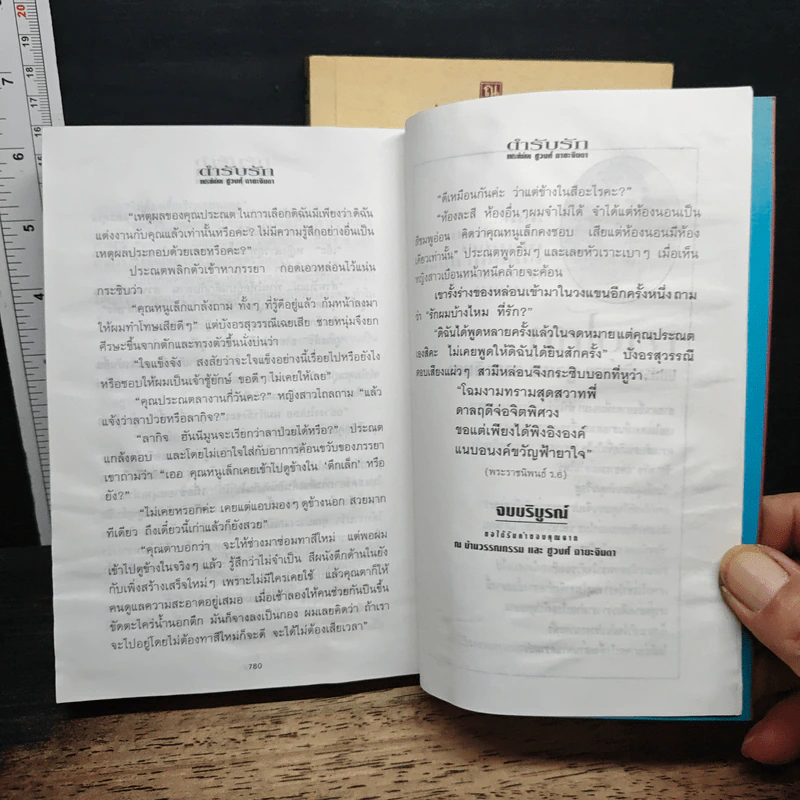 ตำรับรัก
"เหตุผลของคุณประณต ในการเลือกดิฉันมีเพียงว่าดิฉัน
แต่งงานกับคุณแล้วเท่านั้นหรือคะ? ไม่มีความรู้สึกอย่างอื่นเป็น
เหตุผลประกอบด้วยเลยหรือคะ?"
ประณตพลิกตัวเข้าหาภรรยา กอดเอวหล่อนไว้แน่น
กระซิบว่า
"คุณหนูเล็กแกล้งถาม ทั้งๆ ที่รู้ดีอยู่แล้ว ก้มหน้าลงมา
ให้ผมทำโทษเสียดีๆ" แต่บังอรสุวรรณีเฉยเสีย ชายหนุ่มจึงยก
ศีรษะขึ้นจากตักและทรงตัวขึ้นนั่งบ่นว่า
"ใจแข็งจัง สงสัยว่าจะใจแข็งอย่างนี้เรื่อยไปหรือยังไง
หรือชอบให้ผมเป็นเจ้าชู้ยักษ์ ขอดีๆ ไม่เคยให้เลย"
"คุณประณตลางานกี่วันคะ?" หญิงสาวไถลถาม "แล้ว
แจ้งว่าลาป่วยหรือลากิจ?"
"ลากิจ ฮันนีมูนจะเรียกว่าลาป่วยได้หรือ?" ประณต
แกล้งตอบ และโดยไม่เอาใจใส่กับอาการค้อนขวับของภรรยา
เขาถามว่า "เออ คุณหนูเล็กเคยเข้าไปดูข้างใน 'ตึกเล็ก' หรือ
ยัง?"
"ไม่เคยหรอกค่ะ เคยแต่แอบมองๆ ดูข้างนอก สวยมาก
ทีเดียว ถึงเดี๋ยวนี้เก่าแล้วก็ยังสวย"
"คุณตาบอกว่า จะให้ช่างมาซ่อมทาสีใหม่ แต่พอผม
เข้าไปดูข้างในจริงๆ แล้ว รู้สึกว่าไม่จำเป็น สีผนังตึกด้านในยัง
กับเพิ่งสร้างเสร็จใหม่ๆ เพราะไม่มีใครเคยใช้ แล้วคุณตาก็ให้
คนดูแลความสะอาดอยู่เสมอ เมื่อเช้าลองให้คนช่วยกันปีนขึ้น
ขัดตะไคร่น้ำนอกตึก มันก็จางลงเป็นกอง ผมเลยคิดว่า ถ้าเรา
จะไปอยู่โดยไม่ต้องทาสีใหม่ก็จะดี จะได้ไม่ต้องเสียเวลา"
760
ตำรับรัก
"ดีเหมือนกันค่ะ ว่าแต่ข้างในสีอะไรคะ?"
"ห้องละสี ห้องอื่นๆ ผมจำไม่ได้ จำได้แต่ห้องนอนเป็น
สีชมพูอ่อน คิดว่าคุณหนูเล็กคงชอบ เสียแต่ห้องนอนมีห้อง
เดียวเท่านั้น" ประณตพูดยิ้มๆ และเลยหัวเราะเบาๆ เมื่อเห็น
หญิงสาวเบือนหน้าหนีคล้ายจะค้อน
เขารั้งร่างของหล่อนเข้ามาในวงแขนอีกครั้งหนึ่ง ถาม
ว่า "รักผมบ้างไหม ที่รัก?"
"ดิฉันได้พูดหลายครั้งแล้วในจดหมาย แต่คุณประณต
เองสิคะ ไม่เคยพูดให้ดิฉันได้ยินสักครั้ง" บังอรสุวรรณี
ตอบเสียงแผ่วๆ สามีหล่อนจึงกระซิบบอกที่หูว่า
"โฉมงามทรามสุดสวาทพี่
ดาลฤดีจ่อจิตพิศวง
ขอแต่เพียงได้พิงอิงองค์
แนบอนงค์ขวัญฟ้ายาใจ"
(พระราชนิพนธ์ ร.6)
จบบริบูรณ์
ขอได้รับคำขอบคุณจาก
ณ บ้านวรรณกรรม และ ฐวงศ์ ฉายะจินดา